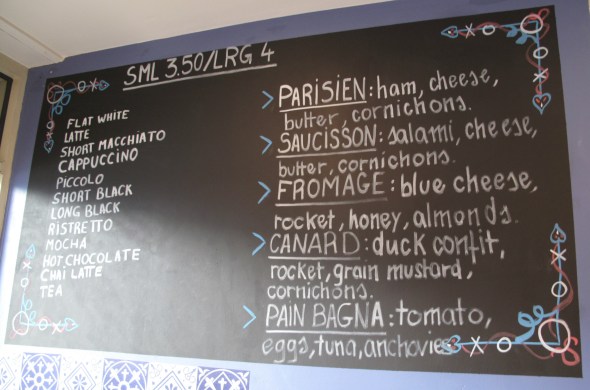 SML 3.50/LRG 4
FLAT WHITE
LATTE
SHORT MACCHIATO
CAPPUCCINO
PICCOLO
SHORT BLACK
LONG BLACK
RISTRETTO
MOCHA
HOT CHOCOLATE
CHAI LATTE
TEA
> PARISIEN: ham, cheese,
butter, cornichons.
> SAUCISSON: salami, cheese,
butter, cornichons.
> FROMAGE: blue cheese,
rocket, honey, almonds.
> CANARD: duck confit,
rocket, grain mustard,
cornichons.
> PAIN BAGNA: tomato,
eggs, tuna, anchovies